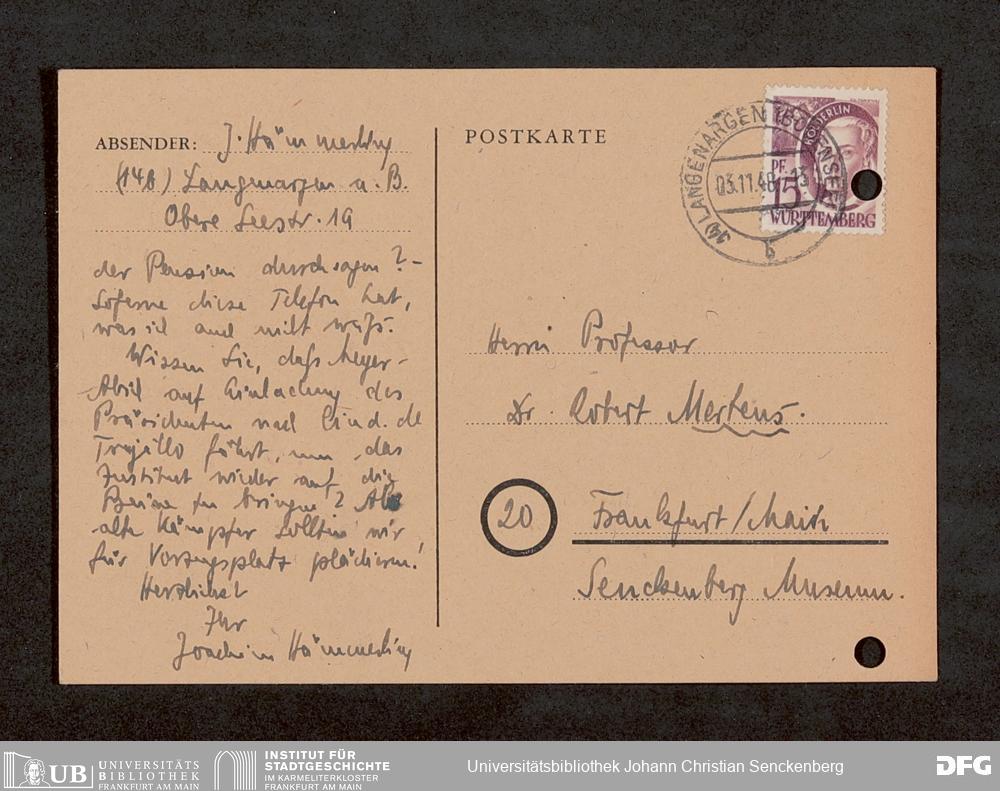 ABSENDER: J. Hämmerling
(14b) Langenargen a. B.
Obere Seestr. 19
der Pension durchsagen? -
Soferne diese Telefon hat,
was ich auch nicht weiß.
Wissen Sie, daß Meyer-
Abich auf Einladung des
Präsidenten nach Ciud. de
Trujillo fährt, um das
Institut wieder auf die
Beine zu bringen? Als
alte Kämpfer sollten wir
für Vorzugsplatz plädieren!
Herzlichst
Ihr
Joachim Hämmerling
POSTKARTE
(14) LANGENARGEN (BODENSEE)
03.11.48
b
HÖLDERLIN
PF.
15
WÜRTTEMBERG
Herrn Professor
Dr. Robert Mertens.
20
Frankfurt/Main
Senckenberg Museum.
UB UNIVERSITÄTS
BIBLIOTHEK
FRANKFURT AM MAIN
INSTITUT FÜR
STADTGESCHICHTE
IM KARMELITERKLOSTER
FRANKFURT AM MAIN
Universitätsbibliothek Johann Christian Senckenberg
DFG